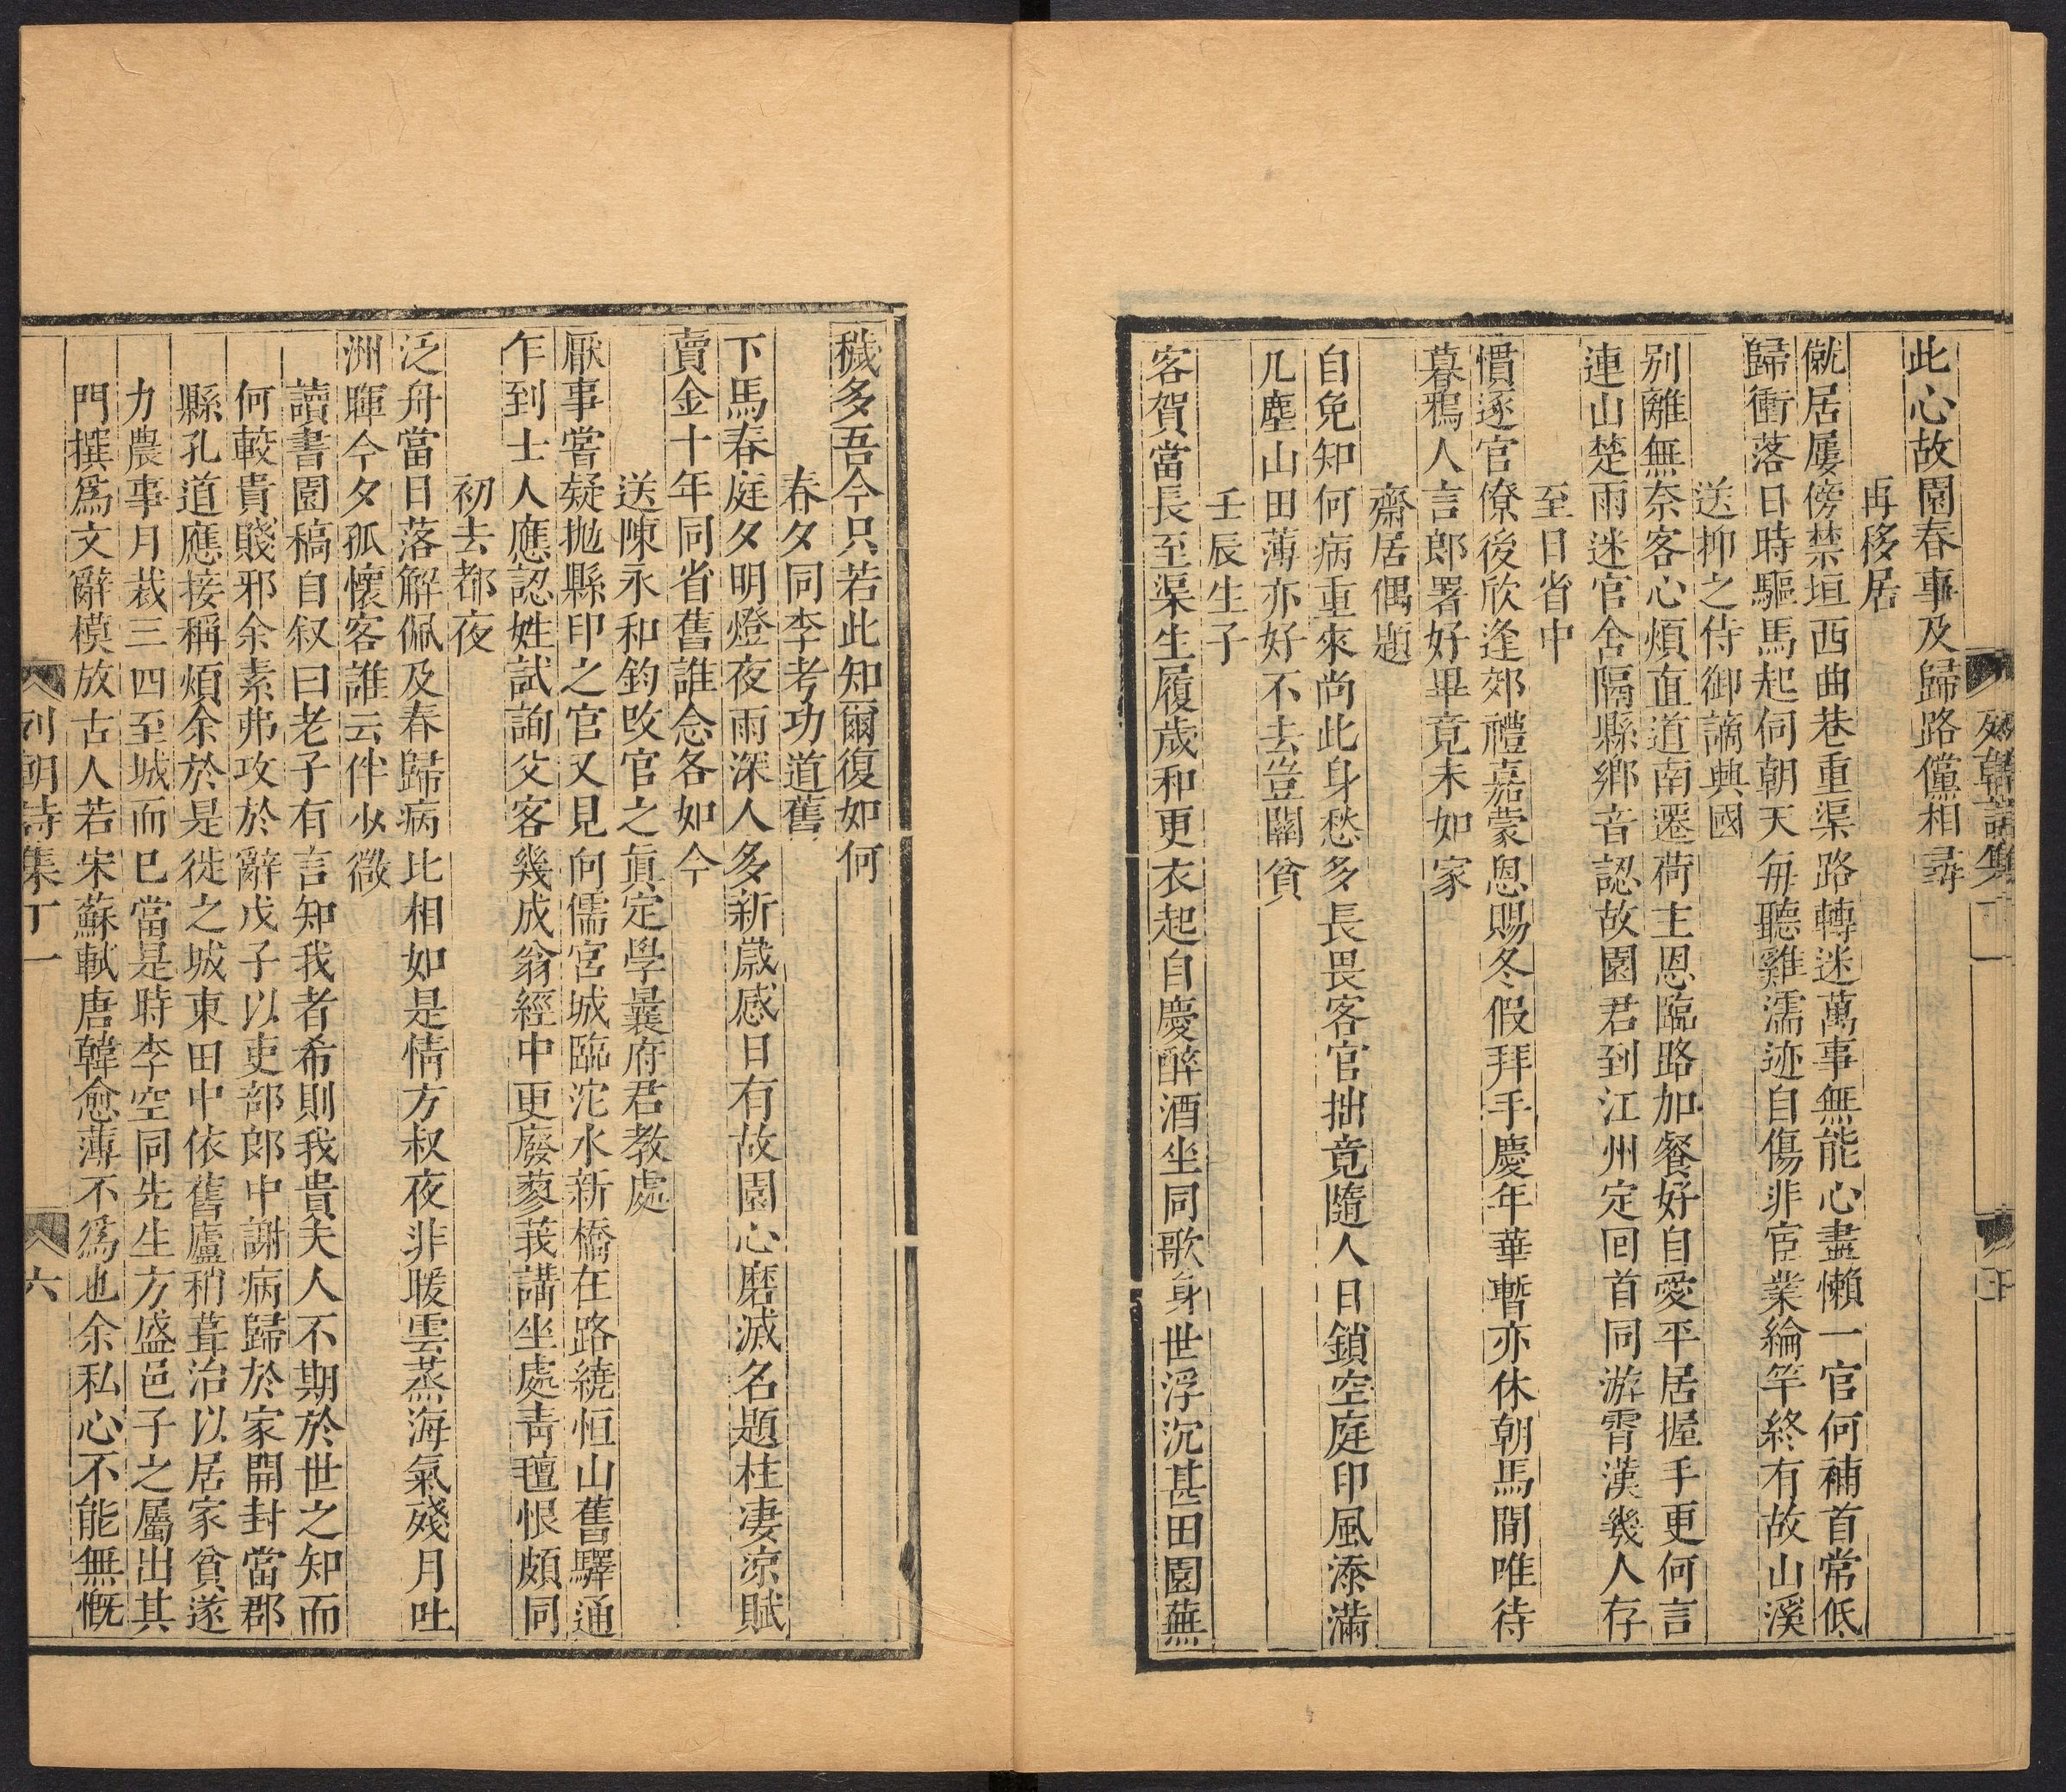 此心故園春事及歸路儻相尋
再移居
僦居屢傍禁垣西曲巷重渠路轉迷萬事無能心盡懶一官何補首常低
歸衝落日時驅馬起伺朝天每聽雞濡迹自傷非宦業綸竿終有故山溪
送抑之侍御謫興國
别離無奈客心煩直道南遷荷主恩臨路加餐好自愛平居握手更何言
連山楚雨迷官舍隔縣鄉音認故園君到江州定回首同游霄漢幾人存
至日省中
慣逐官僚後欣逢郊禮嘉蒙恩賜冬假拜手慶年華暫亦休朝馬閒唯待
暮鴉人言郎署好畢竟未如家
齋居偶題
自免知何病重來尚此身愁多長畏客官拙竟隨人日鎖空庭印風添滿
几塵山田薄亦好不去豈關貧
壬辰生子
客賀當長至渠生履歲和更衣起自慶醉酒坐同歌身世浮沉甚田園蕪
穢多吾今只若此知爾復如何
春夕同李考功道舊
下馬春庭夕明燈夜雨深人多新歲感日有故園心磨滅名題柱凄涼賦
賣金十年同省舊誰念各如今
送陳永和鈞攺官之眞定學曩府君教處
厭事嘗疑抛縣印之官又見向儒宮城臨沱水新橋在路繞恒山舊驛通
乍到士人應認姓試詢父客幾成翁經中更廢蓼莪講坐處靑氊恨頗同
初去都夜
泛舟當日落解佩及春歸病比相如是情方叔夜非暖雲蒸海氣殘月吐
洲暉今夕孤懷客誰云伴少微
讀書園稿自叙曰老子有言知我者希則我貴夫人不期於世之知而
何較貴賤邪余素弗攻於辭戊子以吏部郎中謝病歸於家開封當郡
縣孔道應接稱煩余於是徙之城東田中依舊廬稍葺治以居家貧遂
力農事月裁三四至城而已當是時李空同先生方盛邑子之屬出其
門撰爲文辭模放古人若宋蘇軾唐韓愈薄不爲也余私心不能無慨
列朝詩集丁一
六